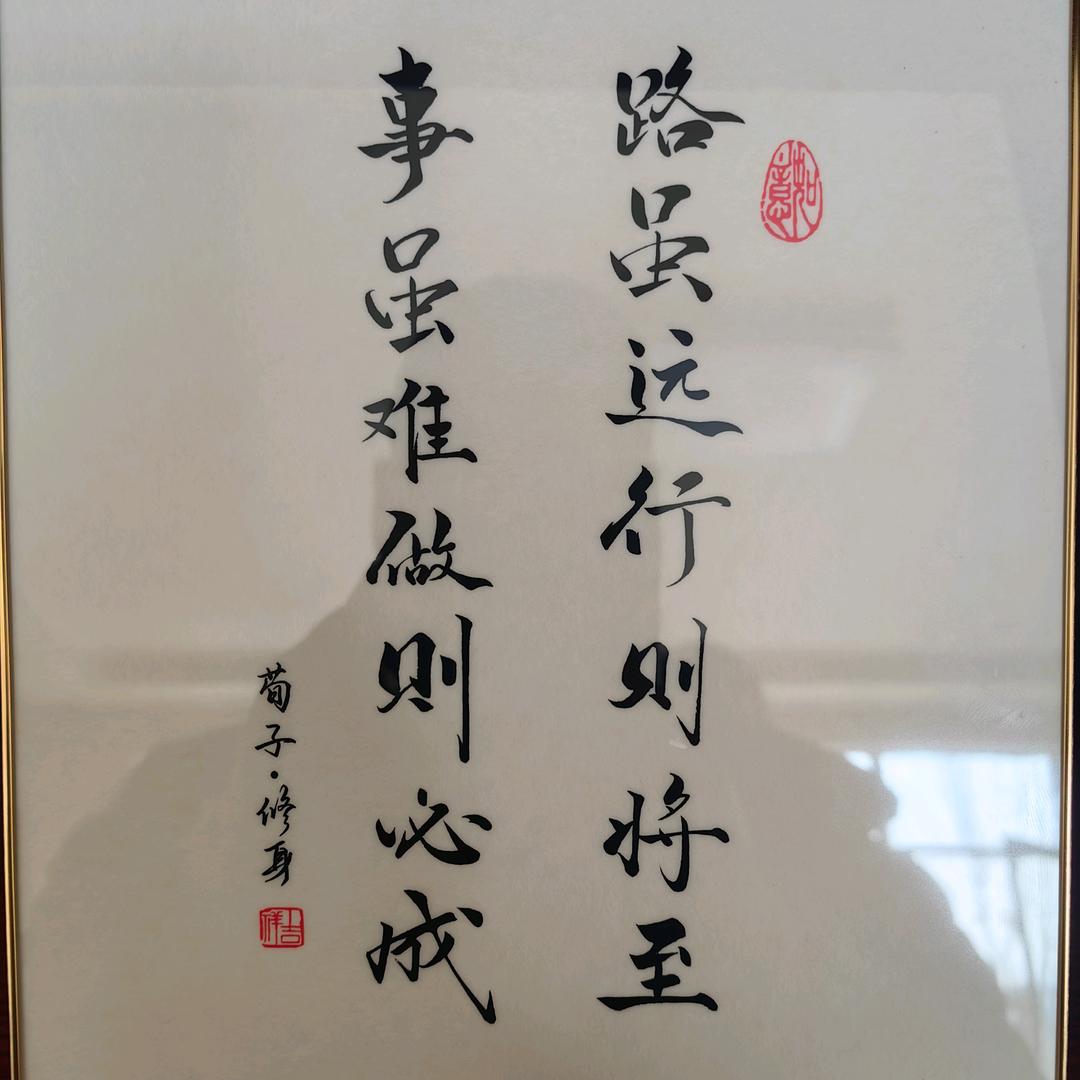 如意
路虽远行则将至
事虽难做则必成
荀子·修身
吉祥